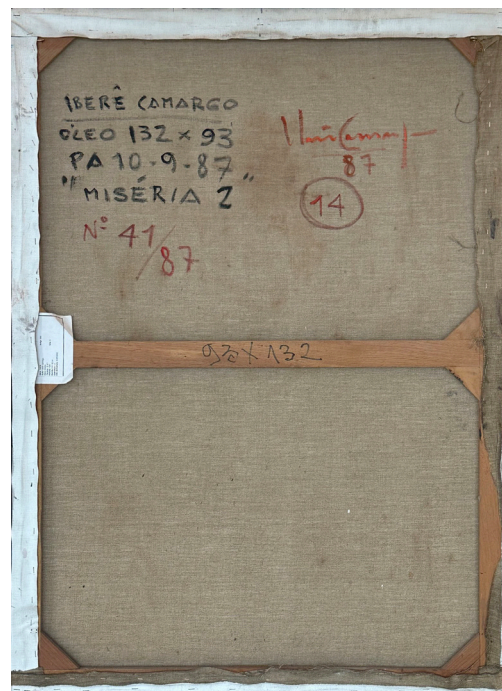 IBERÊ CAMARGO
ÓLEO 132 x 93
PA 10-9-87
"MISÉRIA 2"
Nº 41/87
Iberê Camargo
87
14
93 x 132